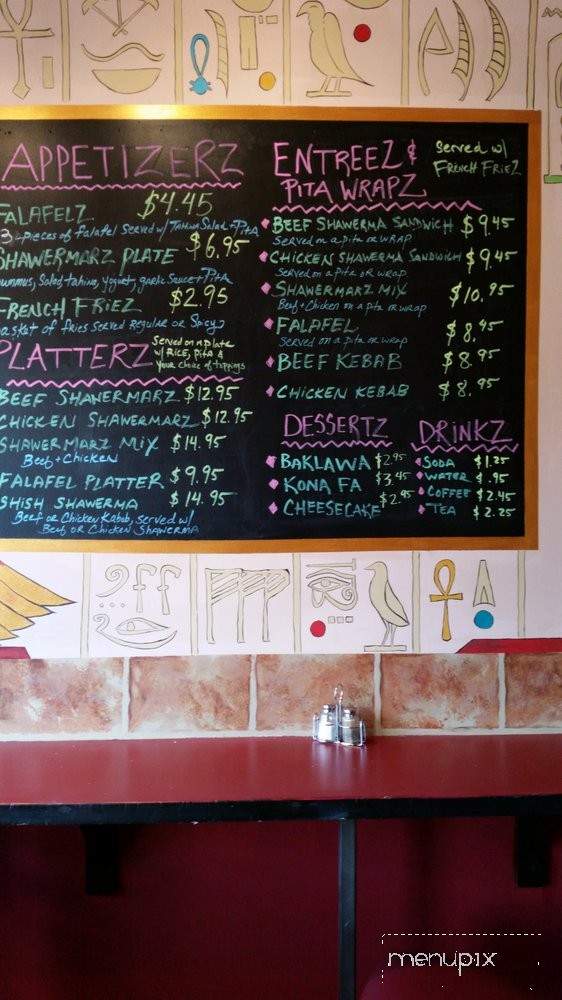 APPETIZERZ
FALAFELZ $4.45
3 pieces of falafel Served w/ Tahina Salad + Pita
SHAWERMARZ PLATE $6.95
hummus, Salad, tahina, yogurt, garlic Sauce + Pita
FRENCH FRIEZ $2.95
basket of fries Served Regular or Spicy
PLATTERZ
Served on a plate
w/ RICE, PITA &
Your choice of toppings
BEEF SHAWERMARZ $12.95
CHICKEN SHAWERMARZ $12.95
SHAWERMARZ MIX $14.95
Beef + Chicken
FALAFEL PLATTER $9.95
SHISH SHAWERMA $14.95
Beef or Chicken Kabob, served w/
Beef or Chicken Shawerma
ENTREEZ &
PITA WRAPZ
Served w/
FRENCH FRIEZ
BEEF SHAWERMA SANDWICH $9.45
Served on a pita or wrap
CHICKEN SHAWERMA SANDWICH $9.45
Served on a pita or wrap
SHAWERMARZ MIX $10.95
Beef + Chicken on a pita or wrap
FALAFEL $8.45
Served on a pita or wrap
BEEF KEBAB $8.95
CHICKEN KEBAB $8.95
DESSERTZ
BAKLAWA $2.95
KONA FA $3.45
CHEESECAKE $2.95
DRINKZ
SODA $1.25
WATER $.95
COFFEE $2.45
TEA $2.25
menupix